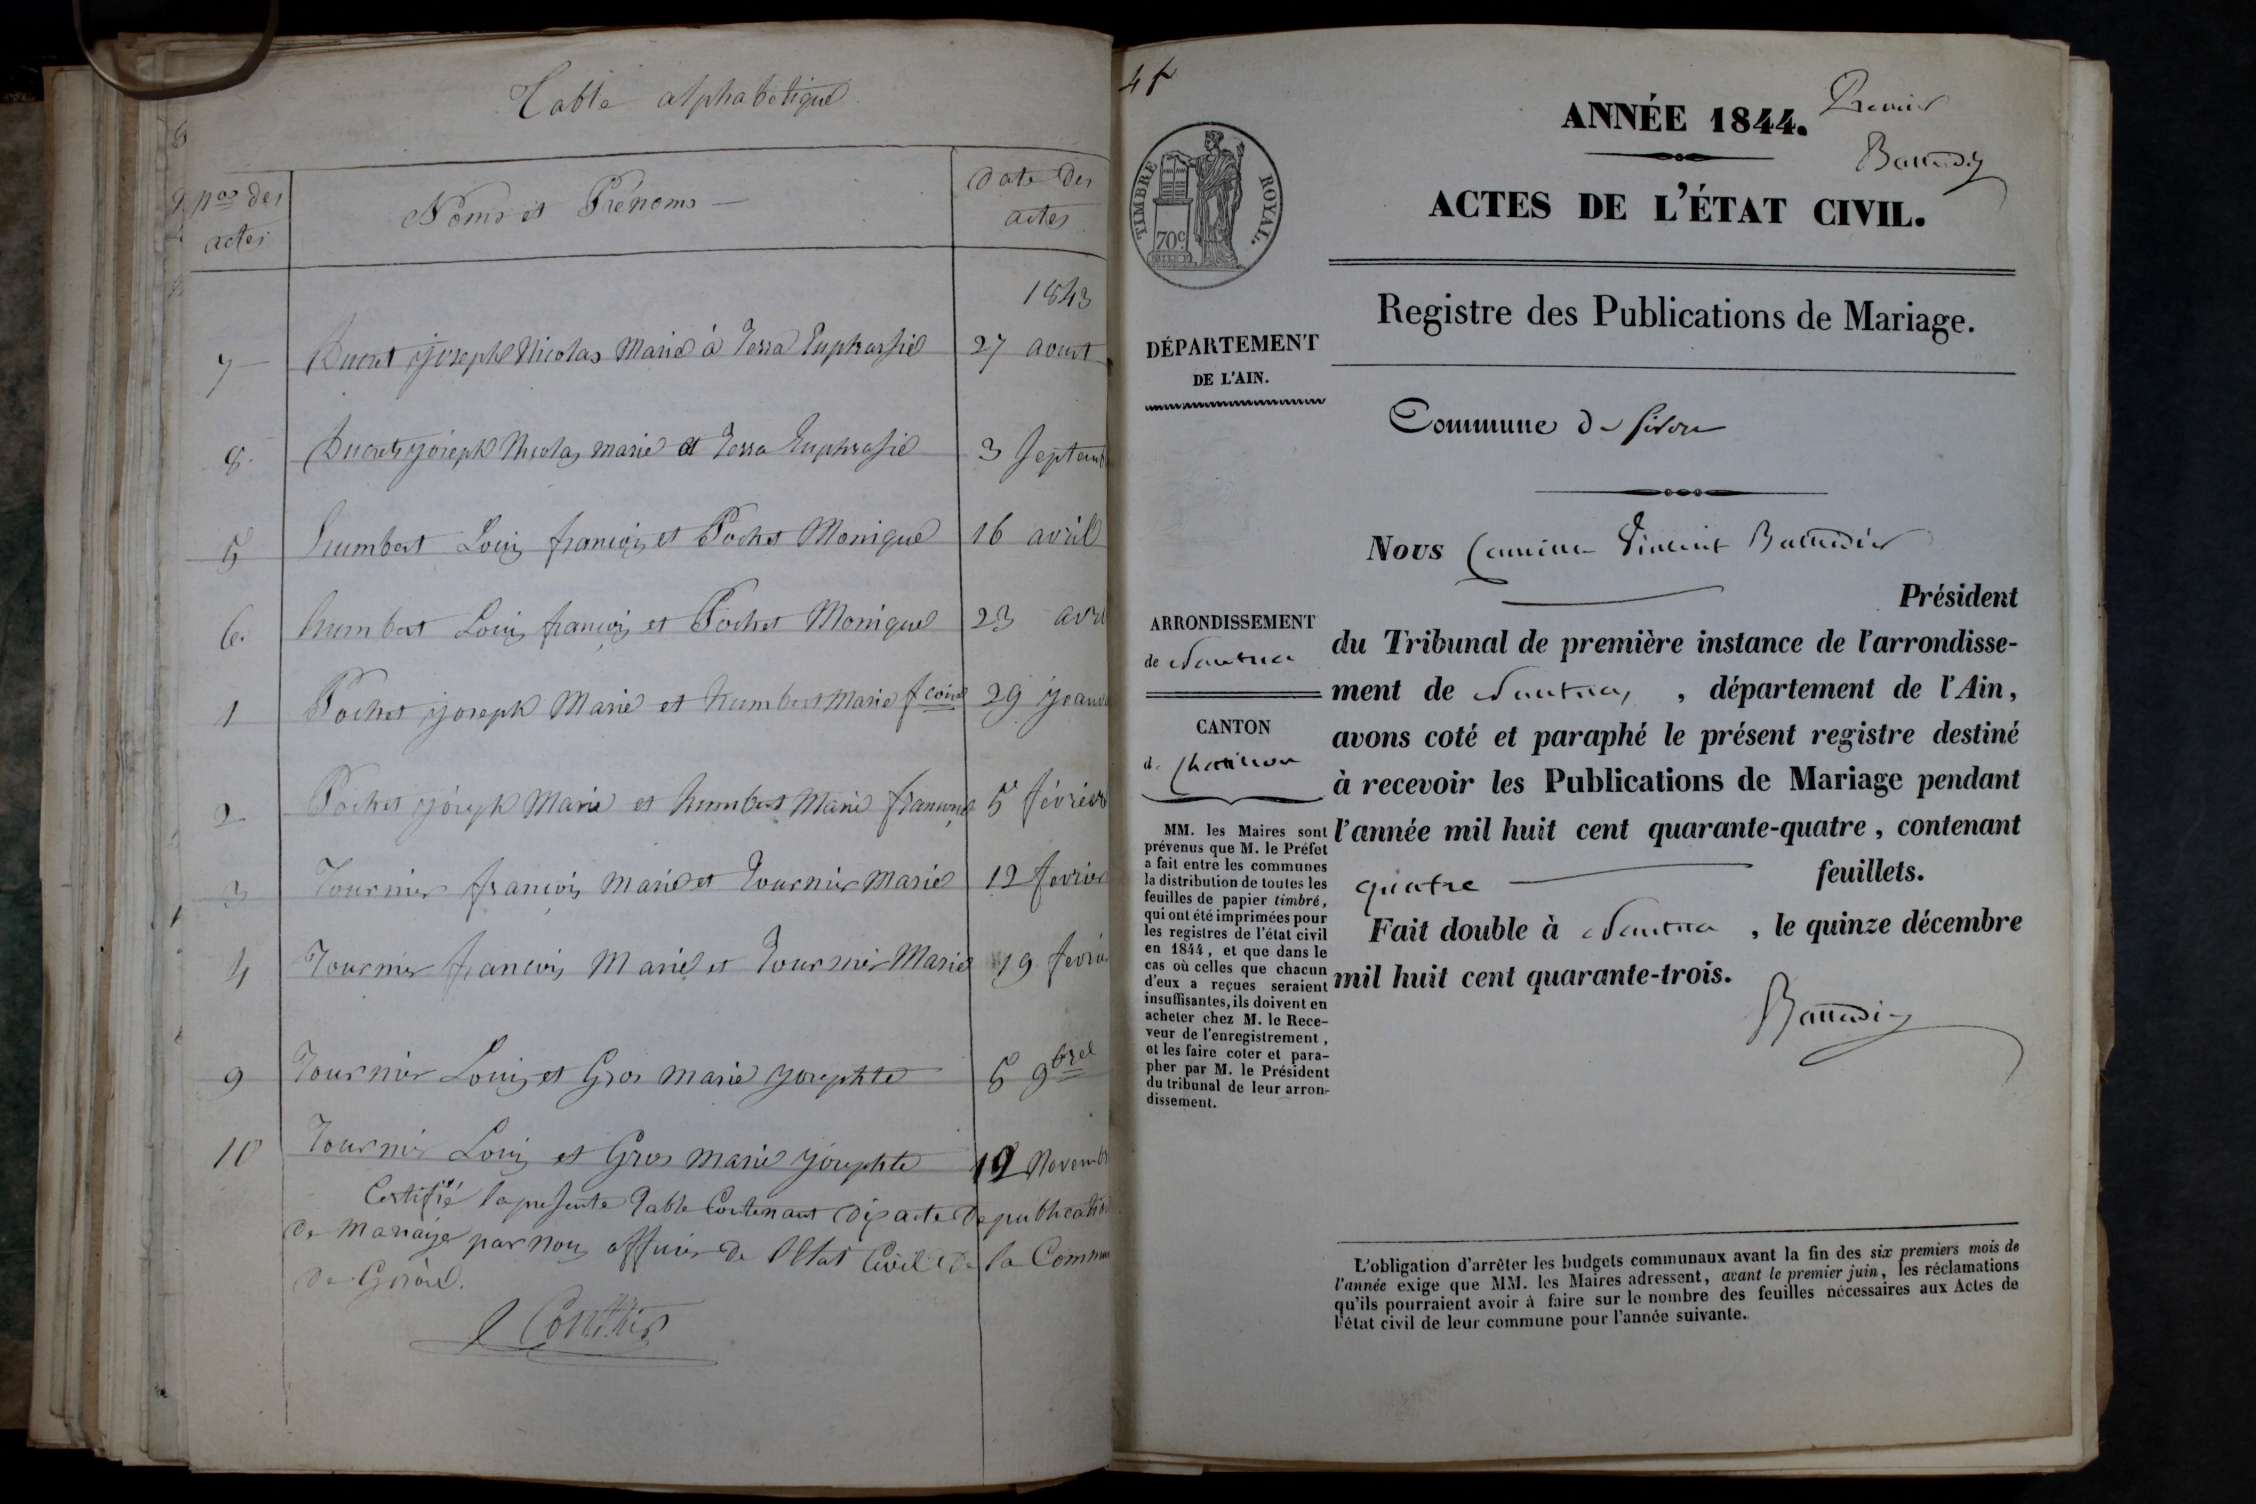 Table alphabétique
nos des
actes
Noms et Prénoms
date des
actes
1843
7 Ducret joseph Nicolas Marie à Terra Euphrasie 27 aout
8 Ducret joseph Nicolas marie et Terra Euphrasie 3 Septemb
5 humbert Louis françois et Pochet Monique 16 avril
6 humbert Louis françois et Pochet Monique 23 avri
1 Pochet joseph Marie et humbert Marie fcoise 29 janv
2 Pochet joseph Marie et humbert Marie françoise 5 février
3 Tournier françois Marie et Tournier Marie 12 fevrier
4 Tournier françois Marie et Tournier Marie 19 fevri
9 Tournier Louis et Gros marie josephte 5 9bre
10 Tournier Louis et Gros marie josephte 12 Novemb
Certifié la presente Table Contenant dix acte de publication
de mariage par nous officier de l'Etat Civil de la Commun
de
4
ANNÉE 1844.
Premier
TIMBRE ROYAL.
70c
ACTES DE L'ÉTAT CIVIL.
Registre des Publications de Mariage.
DÉPARTEMENT
DE L'AIN.
Commune de
Nous Camille Vincent
Président
ARRONDISSEMENT
de Nantua
du Tribunal de première instance de l'arrondisse-
ment de Nantua, département de l'Ain,
CANTON
de Chatillon
avons coté et paraphé le présent registre destiné
à recevoir les Publications de Mariage pendant
l'année mil huit cent quarante-quatre, contenant
quatre feuillets.
Fait double à Nantua, le quinze décembre
mil huit cent quarante-trois.
MM. les Maires sont
prévenus que M. le Préfet
a fait entre les communes
la distribution de toutes les
feuilles de papier timbré,
qui ont été imprimées pour
les registres de l'état civil
en 1844, et que dans le
cas où celles que chacun
d'eux a reçues seraient
insuffisantes, ils doivent en
acheter chez M. le Rece-
veur de l'enregistrement,
et les faire coter et para-
pher par M. le Président
du tribunal de leur arron-
dissement.
L'obligation d'arrêter les budgets communaux avant la fin des six premiers mois de
l'année exige que MM. les Maires adressent, avant le premier juin, les réclamations
qu'ils pourraient avoir à faire sur le nombre des feuilles nécessaires aux Actes de
l'état civil de leur commune pour l'année suivante.